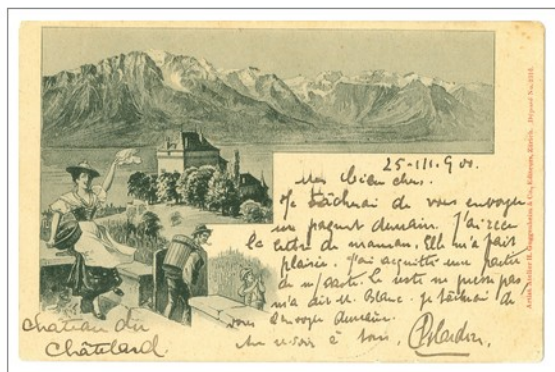 25-III. 900.
Mes bien cher.
Je tâcherai de vous envoyer
un paquet demain. J'ai reçu
la lettre de maman. Elle m'a fait
plaisir. j'ai acquitté une partie
de m/ Le reste ne presse pas
m'a dit M. Blanc. je tâcherai de
vous l'envoyer demain.
Au revoir à tous.
Château du
Châtelard.
Artist. Atelier H. Guggenheim & Co., Editeurs, Zürich. Déposé No.